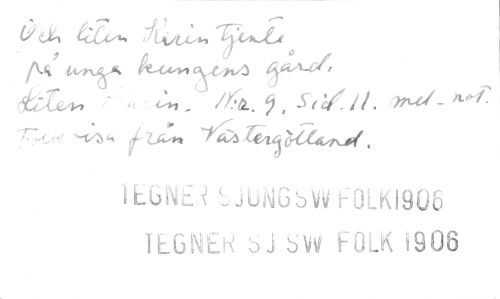 Och liten Karin tjente
på unga kungens gård.
Liten Karin. N:r. 9. Sid. 11. mel-not.
Folkvisa från Västergötland.
TEGNER SJUNG SV FOLK 1906
TEGNER SJ SV FOLK 1906